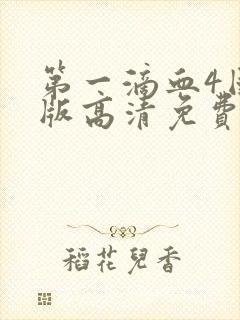 第一滴血4
版高清免費
稻花兒香